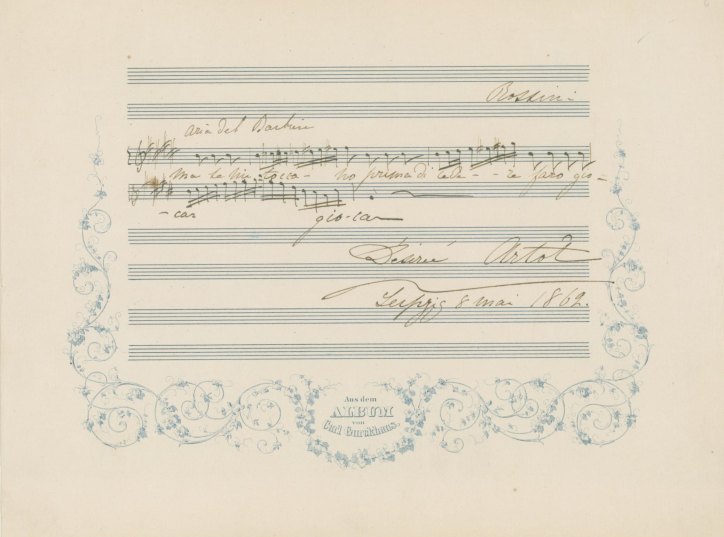 Rossini
aria del Barbiere
ma se mi tocca- no prima di cede - - re faro gio-
- car gio-car
Désirée Artôt
Leipzig 8 mai 1862.
Aus dem
ALBUM
von
Carl Gurckhaus.